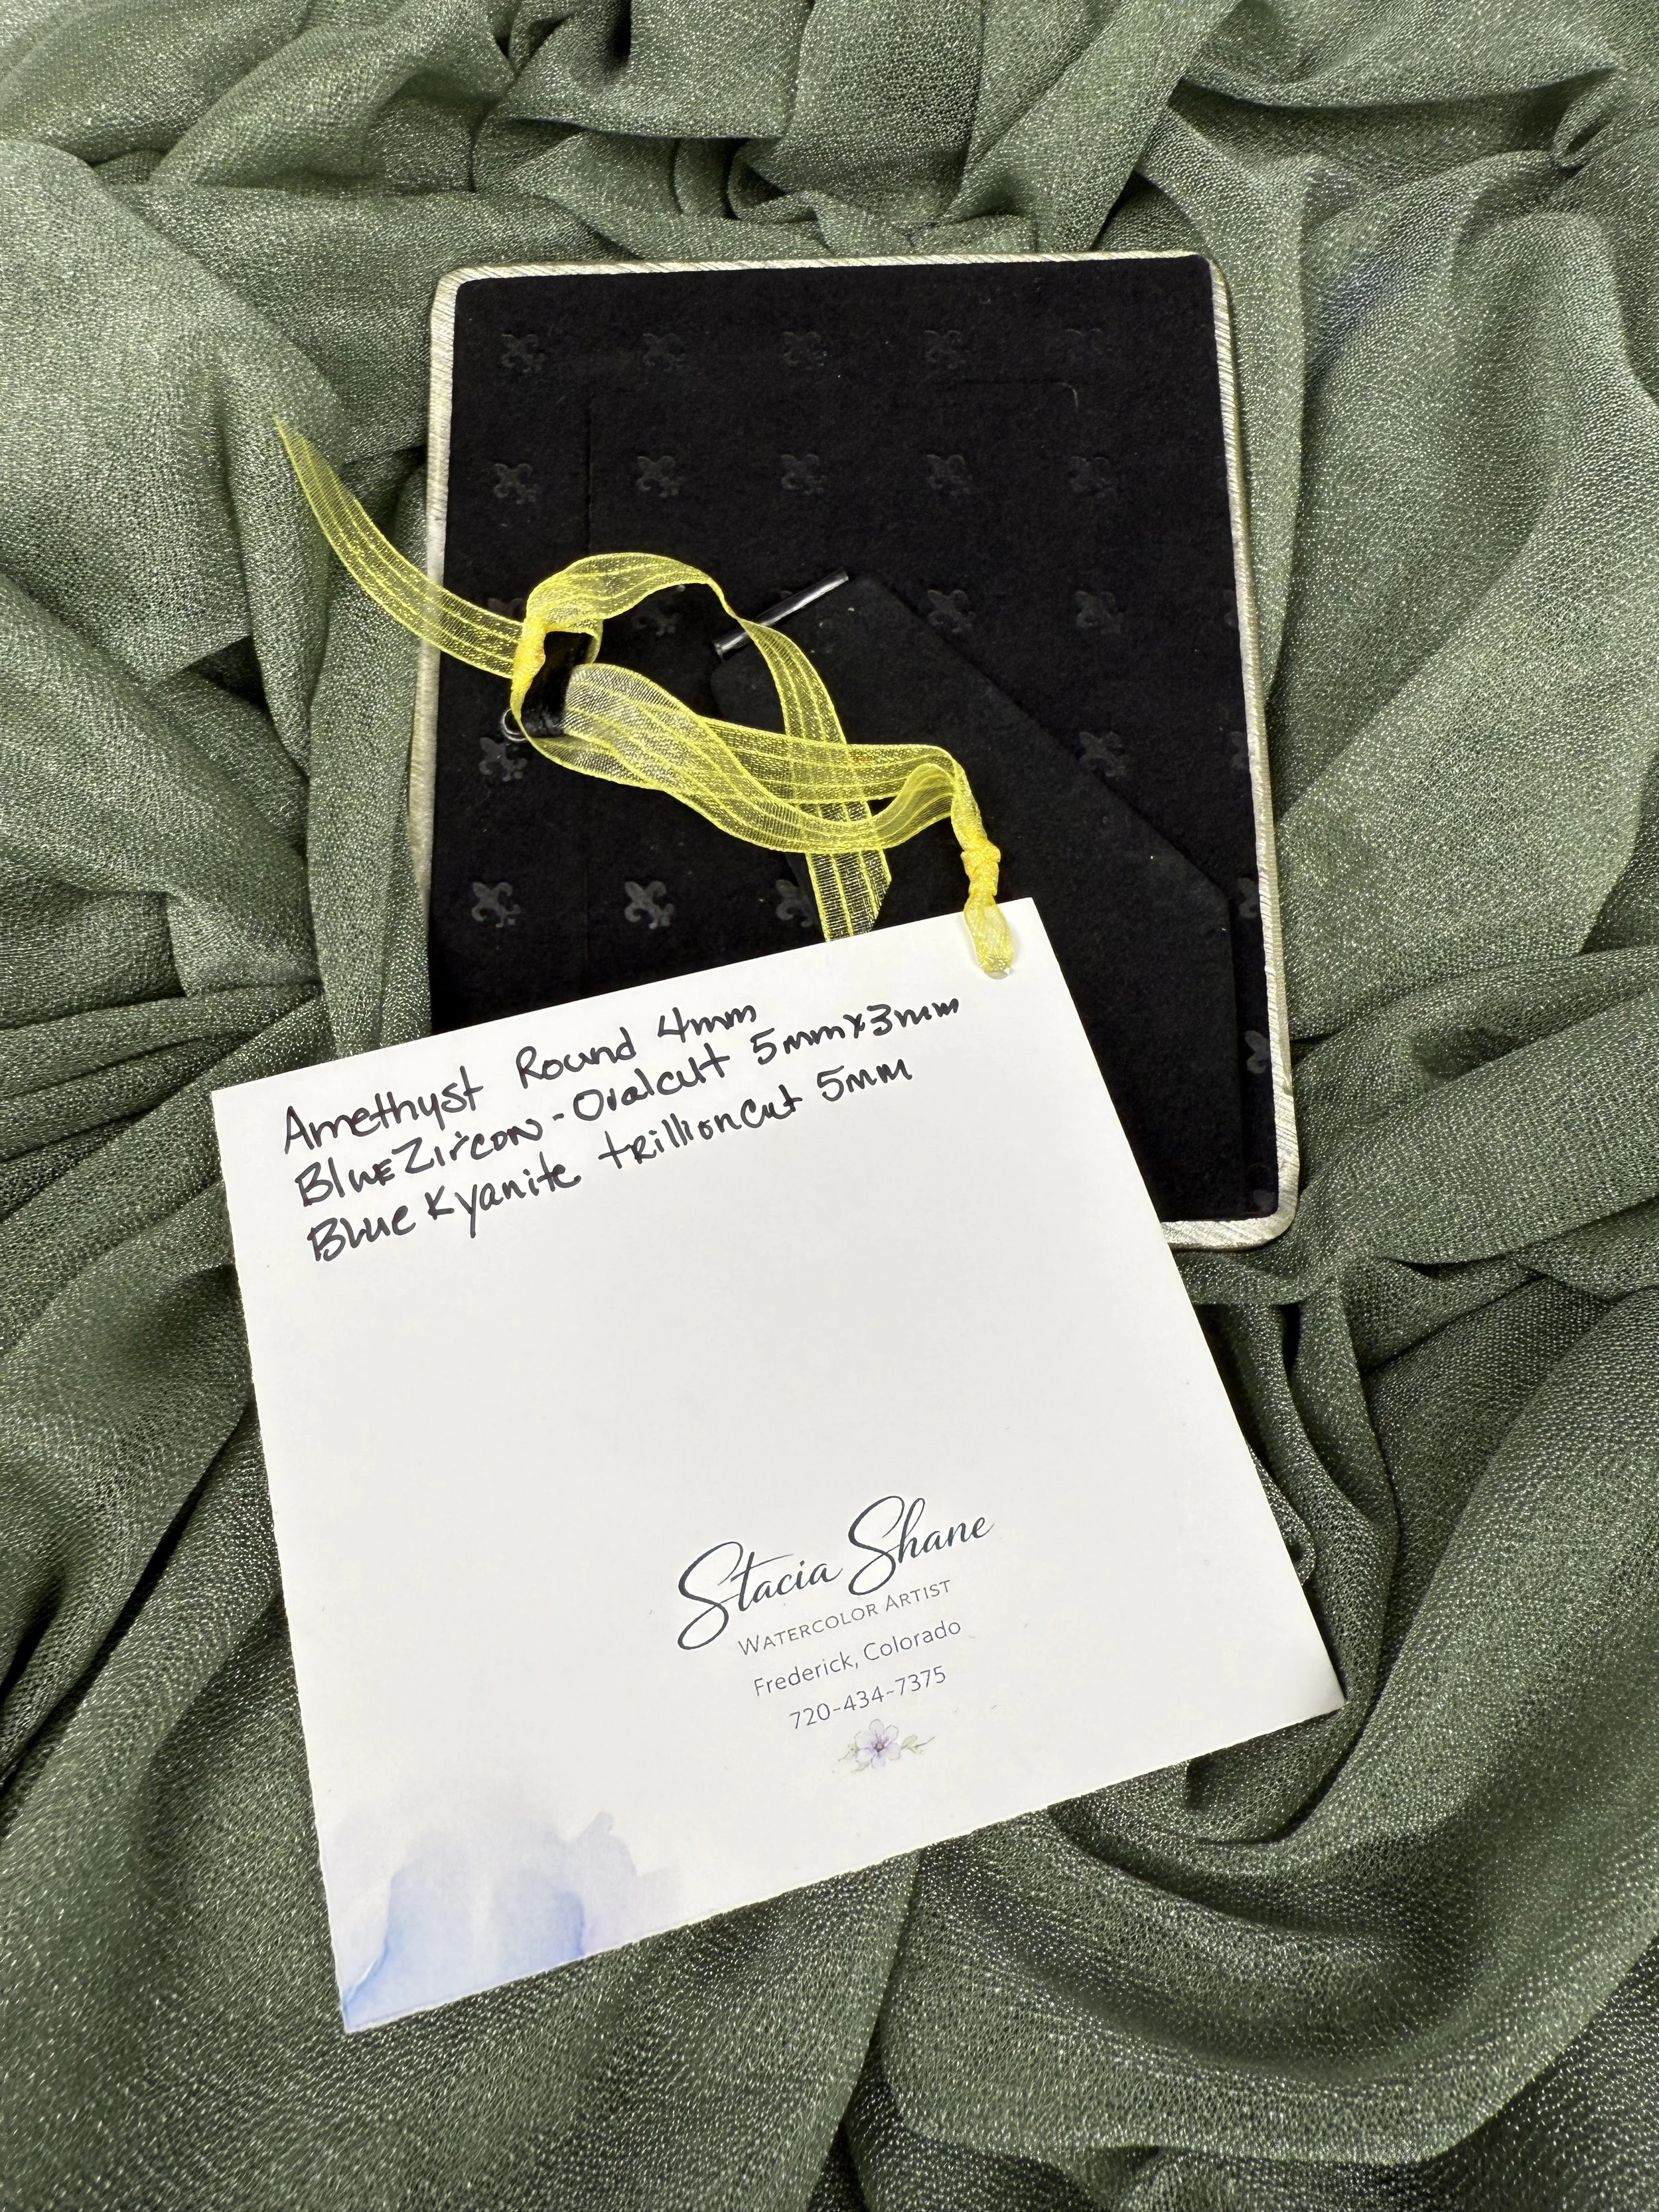 Amethyst Round 4mm
Blue Zircon - Ovalcut 5mmx3mm
Blue Kyanite trillioncut 5mm
Stacia Shane
WATERCOLOR ARTIST
Frederick, Colorado
720-434-7375